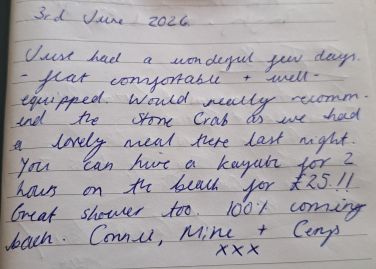 3rd June 2026.
Just had a wonderful few days.
- flat comfortable + well-
equipped. Would really recomm-
end the Stone Crab as we had
a lovely meal there last night.
You can hire a kayak for 2
hours on the beach for £25!!
Great shower too. 100% coming
back. Connie, +
xxx